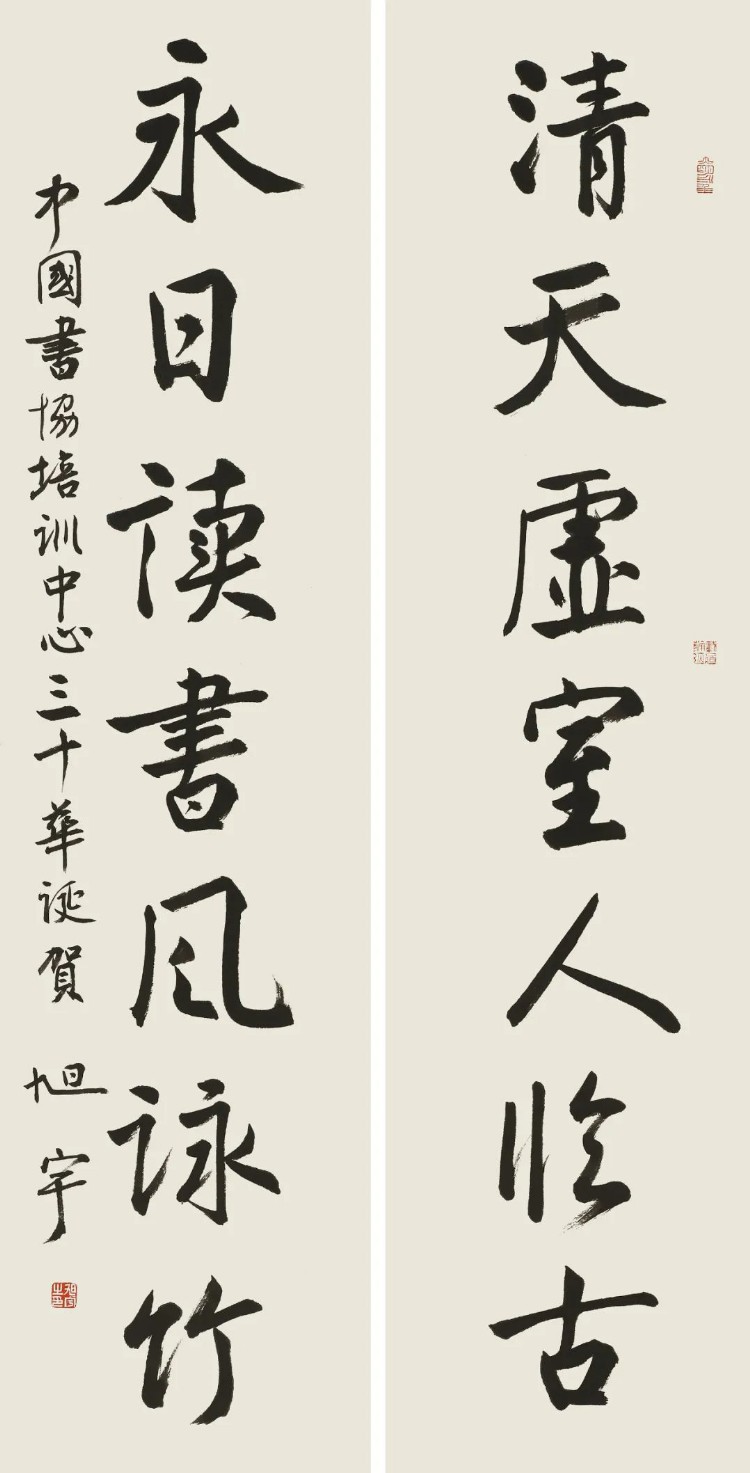 清天虚室人临古
永日读书风咏竹
中國書協培训中心三十華诞賀
旭宇